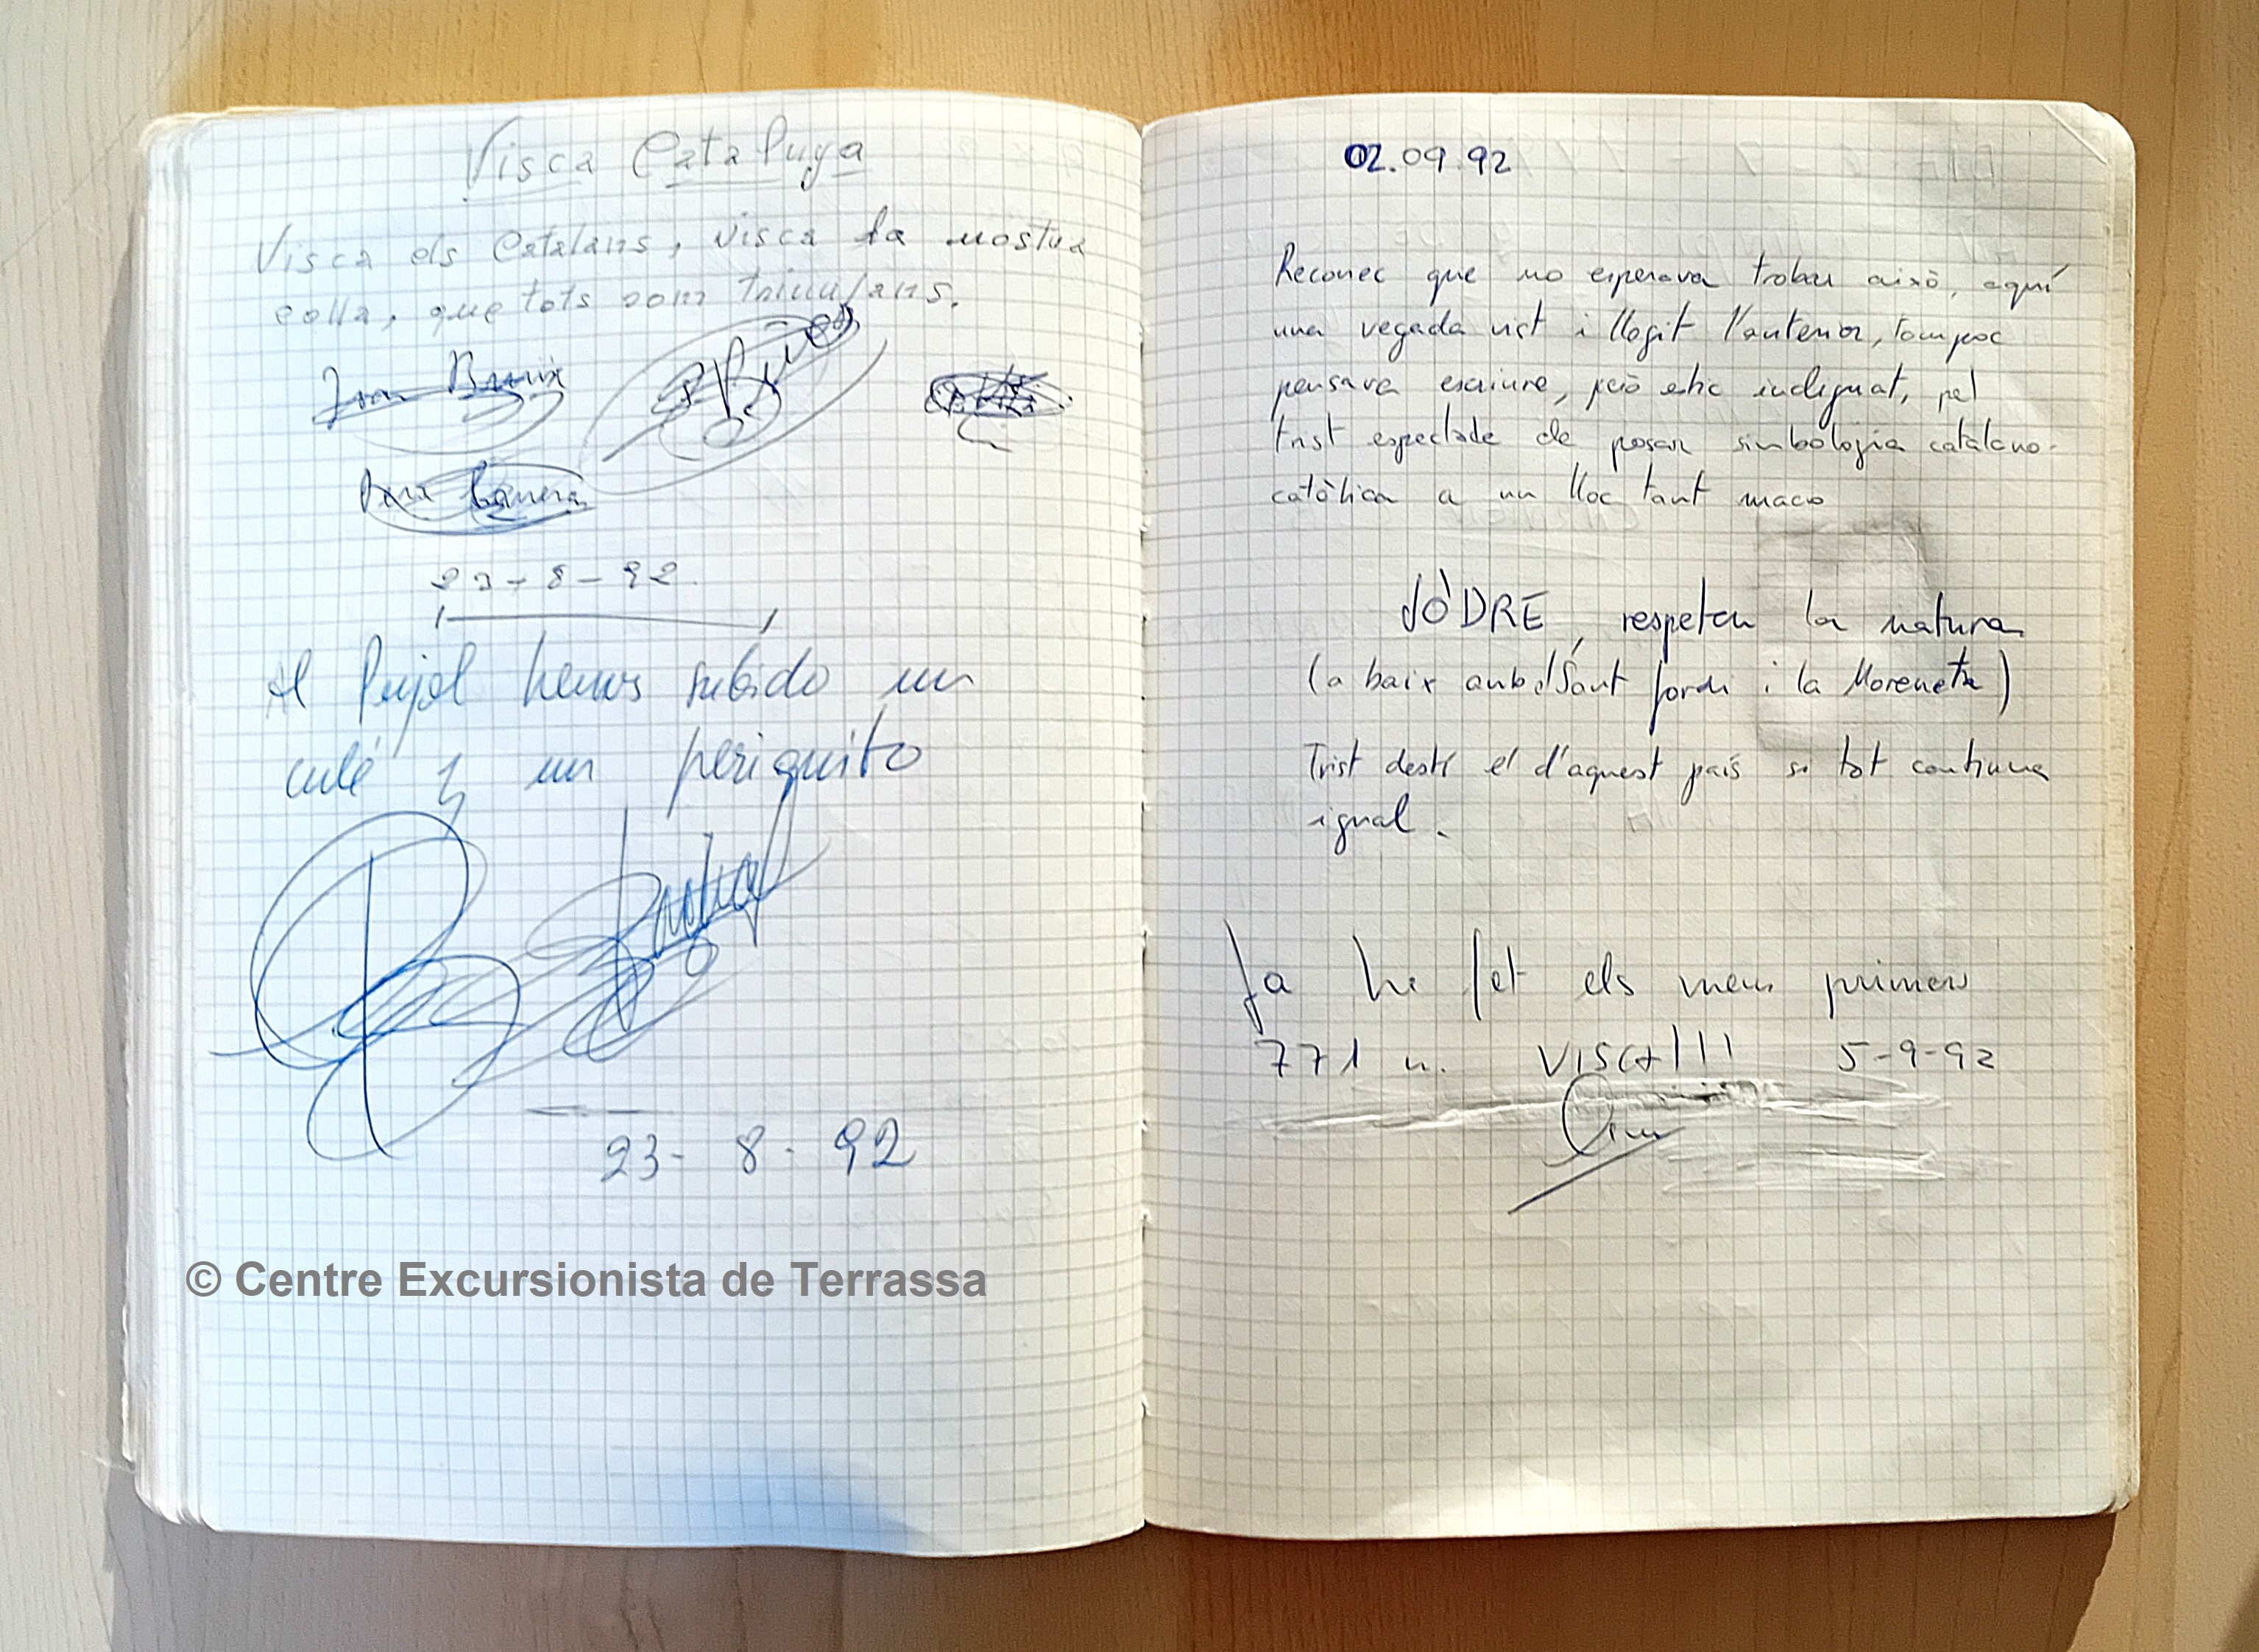 Visca Catalunya
Visca els Catalans, visca la nostra
colla, que tots som triunfans.
Joan Bruix
23-8-92.
Al Pujol hemos subido un
culé y un periquito
23-8-92
© Centre Excursionista de Terrassa
02.09.92
Reconec que no esperava trobar això, aquí
una vegada vist i llegit l'anterior, tampoc
pensava escriure, però estic indignat, pel
trist espectacle de posar simbologia catalano-
catòlica a un lloc tant maco
JÒDRE, respeteu la natura
(a baix amb el Sant Jordi i la Moreneta)
Trist destí el d'aquest país si tot continua
igual.
Ja he fet els meus primers
771 m. VISCA!!! 5-9-92